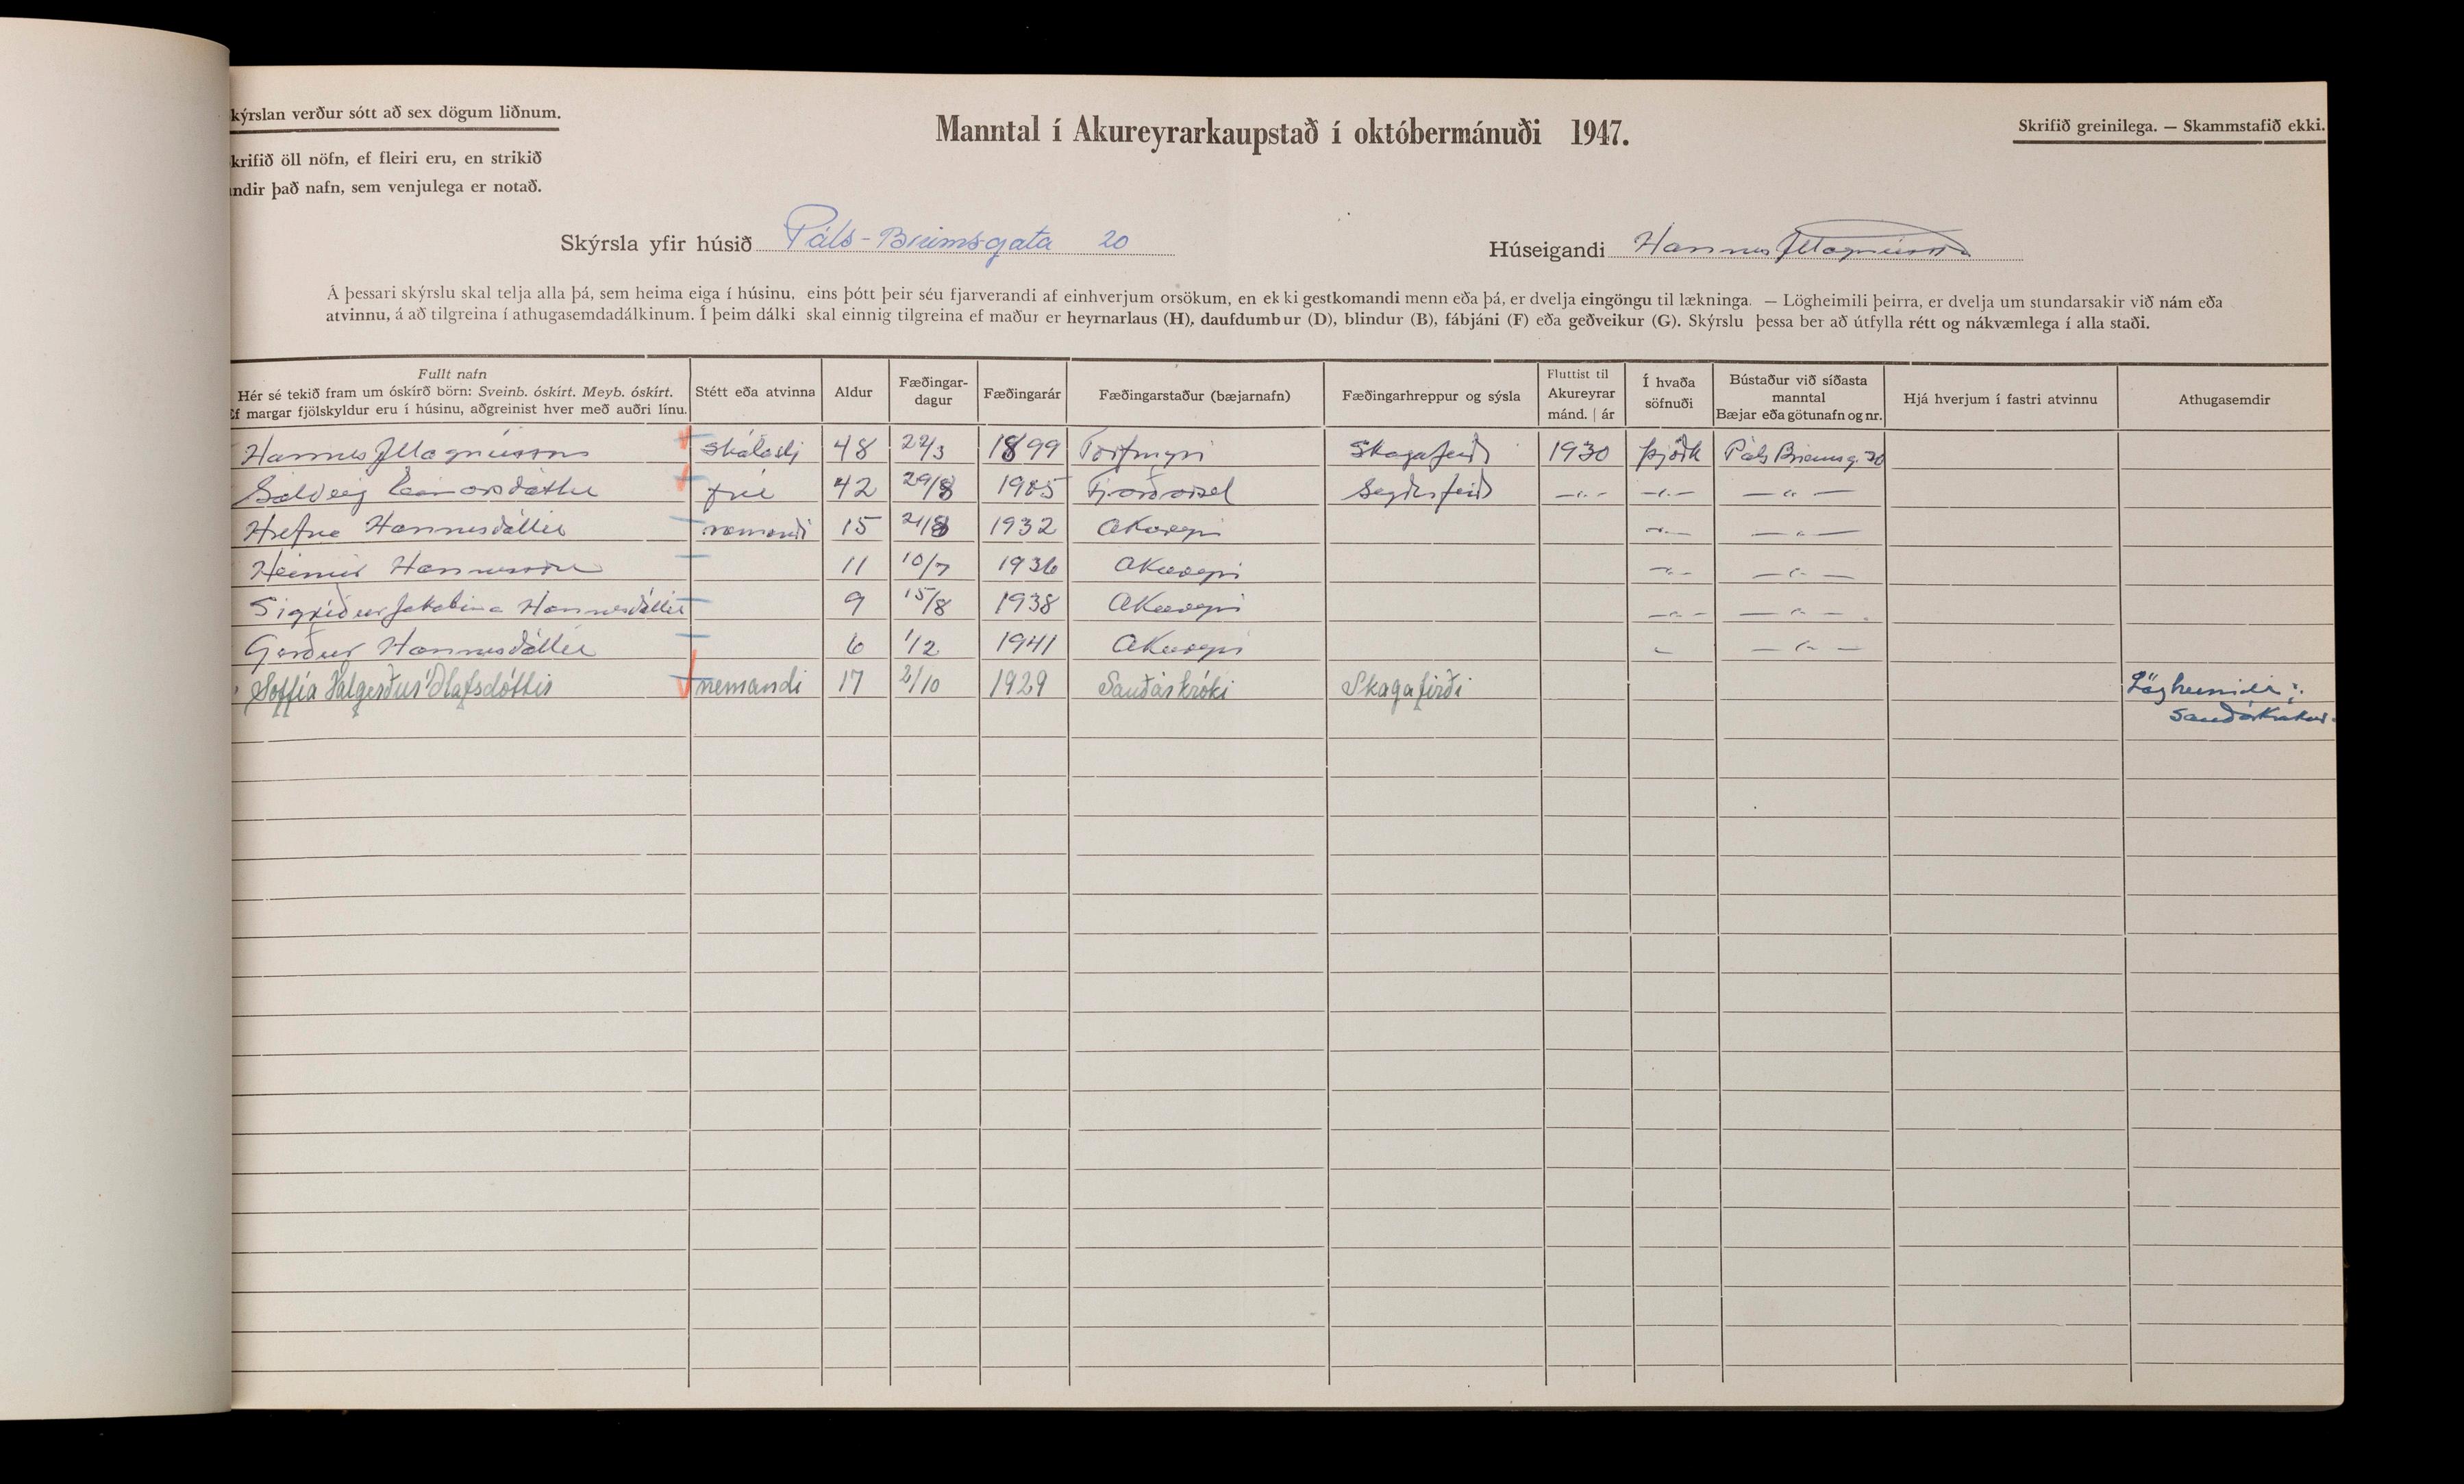 kýrslan verður sótt að sex dögum liðnum.
Manntal í Akureyrarkaupstað í októbermánuði 1947.
Skrifið greinilega. — Skammstafið ekki.
krifið öll nöfn, ef fleiri eru, en strikið
ndir það nafn, sem venjulega er notað.
Skýrsla yfir húsið Páls-Briemsgata 20
Húseigandi Hannes J Magnússon
Á þessari skýrslu skal telja alla þá, sem heima eiga í húsinu, eins þótt þeir séu fjarverandi af einhverjum orsökum, en ekki gestkomandi menn eða þá, er dvelja eingöngu til lækninga. — Lögheimili þeirra, er dvelja um stundarsakir við nám eða
atvinnu, á að tilgreina í athugasemdadálkinum. Í þeim dálki skal einnig tilgreina ef maður er heyrnarlaus (H), daufdumbur (D), blindur (B), fábjáni (F) eða geðveikur (G). Skýrslu þessa ber að útfylla rétt og nákvæmlega í alla staði.
Fullt nafn
Hér sé tekið fram um óskírð börn: Sveinb. óskírt. Meyb. óskírt.
Ef margar fjölskyldur eru í húsinu, aðgreinist hver með auðri línu.
Stétt eða atvinna
Aldur
Fæðingar-
dagur
Fæðingarár
Fæðingarstaður (bæjarnafn)
Fæðingarhreppur og sýsla
Fluttist til
Akureyrar
mánd. | ár
Í hvaða
söfnuði
Bústaður við síðasta
manntal
Bæjar eða götunafn og nr.
Hjá hverjum í fastri atvinnu
Athugasemdir
Hannes J Magnússon skólastj 48 22/3 1899 Torfmýri Skagafirði 1930 þjóðk Páls Briemsg. 20
Sólveig Einarsdóttir frú 42 29/8 1905 Seyðisfirði —"— —"— —"—
Hrefna Hannesdóttir nemandi 15 21/8 1932 Akureyri —"— —"—
Heimir Hannesson 11 10/7 1936 Akureyri —"— —"—
Sigríður Jakobína Hannesdóttir 9 15/8 1938 Akureyri —"— —"—
Gerður Hannesdóttir 6 1/2 1941 Akureyri " —"—
Soffía Valgerður Ólafsdóttir nemandi 17 2/10 1929 Sauðárkróki Skagafirði Lögheimili:
Sauðárkrókur.